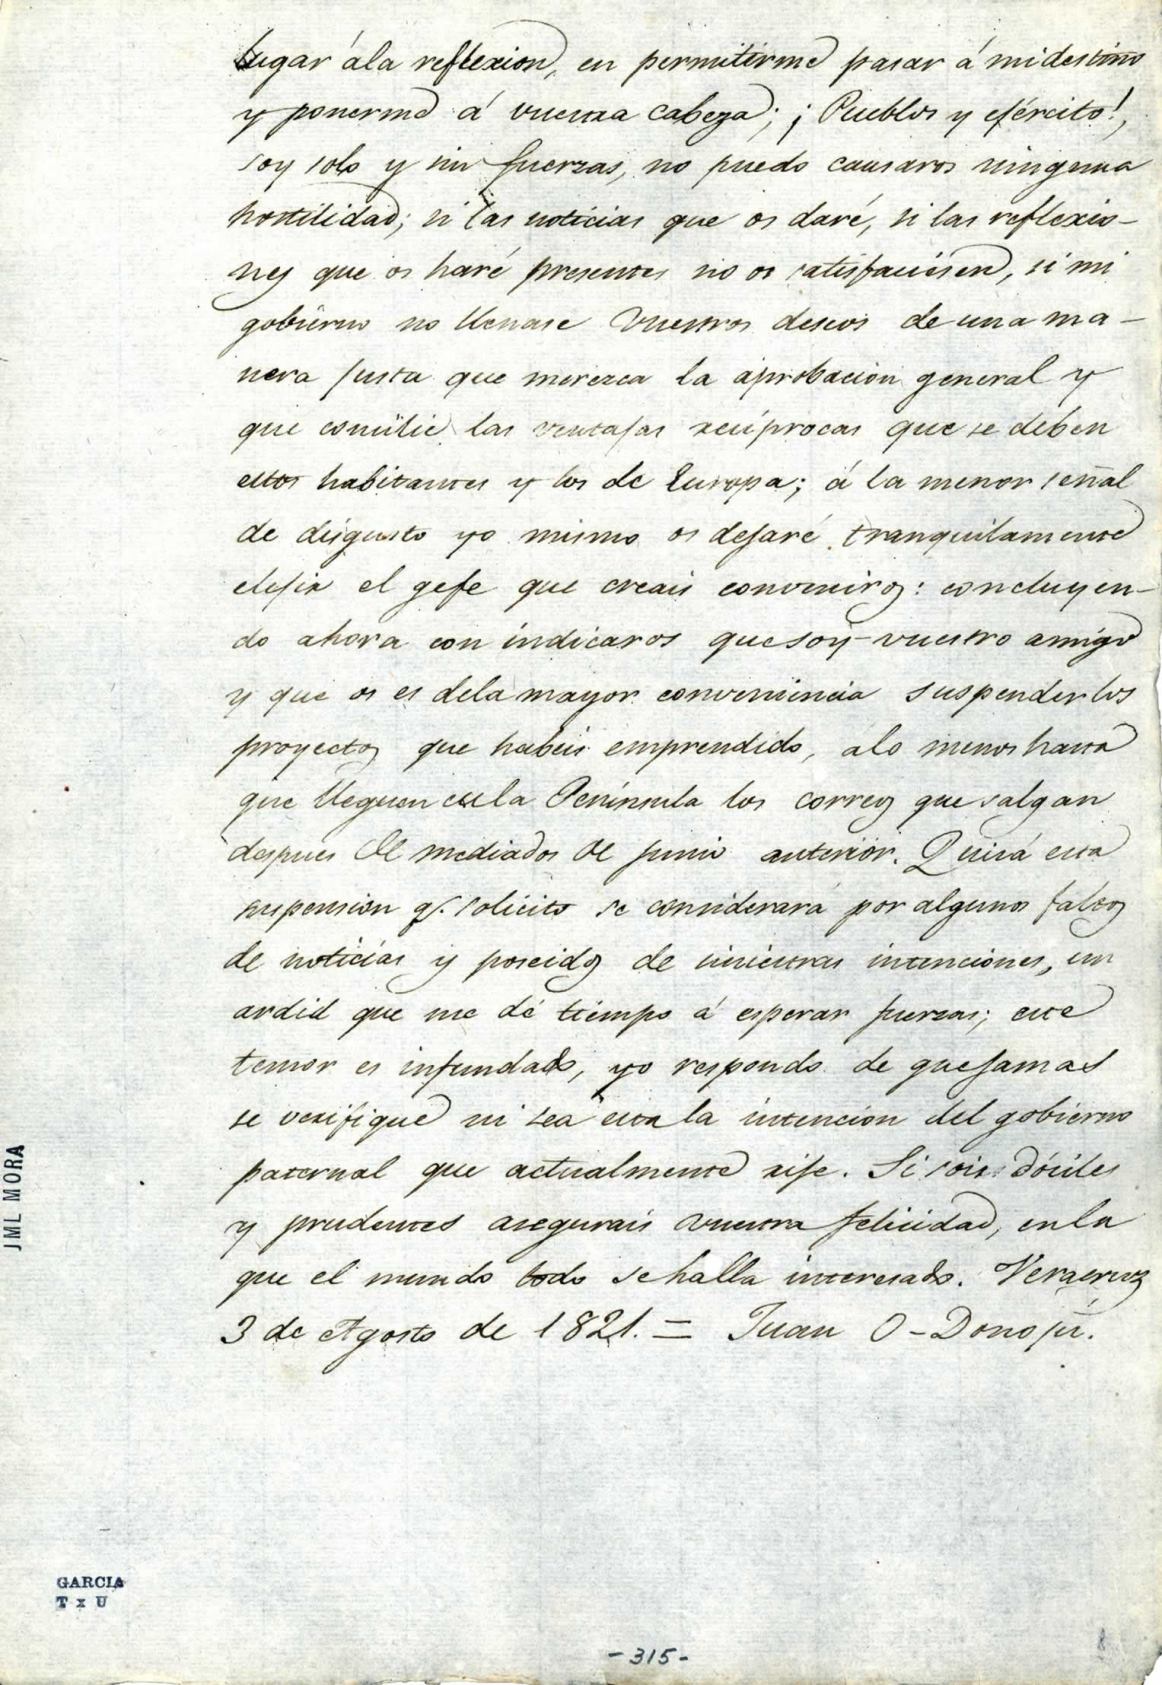 lugar á la reflexion, en permitirme pasar á mi destino
y ponerme á vuestra cabeza; ¡Pueblos y ejército!,
soy solo y sin fuerzas, no puedo causaros ninguna
hostilidad; si las noticias que os daré, si las reflexio-
nes que os haré presentes no os satisfaciesen, si mi
gobierno no llenase vuestros deseos de una ma-
nera justa que merezca la aprobacion general y
que concilie las ventajas recíprocas que se deben
estos habitantes y los de Europa; á la menor señal
de disgusto yo mismo os dejaré tranquilamente
elejir el gefe que creais conveniros: concluyen-
do ahora con indicaros que soy vuestro amigo
y que os es de la mayor conveniencia suspender los
proyectos que habeis emprendido, á lo menos hasta
que lleguen de la Península los correos que salgan
despues de mediados de junio anterior. Quizá esta
suspension q.e solicito se considerará por algunos faltos
de noticias y poseidos de siniestras intenciones, un
ardid que me dé tiempo á esperar fuerzas; este
temor es infundado, yo respondo de que jamas
se verifique ni sea esta la intencion del gobierno
paternal que actualmente rije. Si sois dóciles
y prudentes asegurais vuestra felicidad, en la
que el mundo todo se halla interesado. Veracruz
3 de Agosto de 1821. = Juan O-Donojú.
JML MORA
GARCIA
T x U
-315-